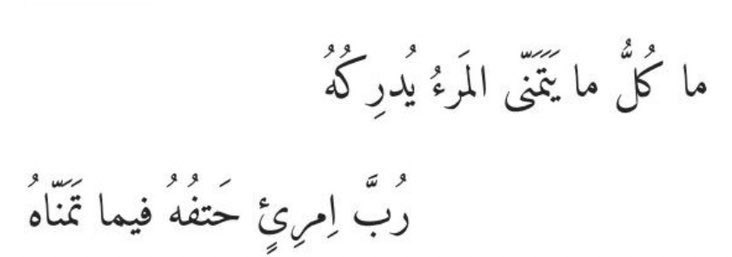 ما كُلُّ ما يَتَمَنّى المَرءُ يُدرِكُهُ
رُبَّ اِمرِئٍ حَتفُهُ فيما تَمَنّاهُ